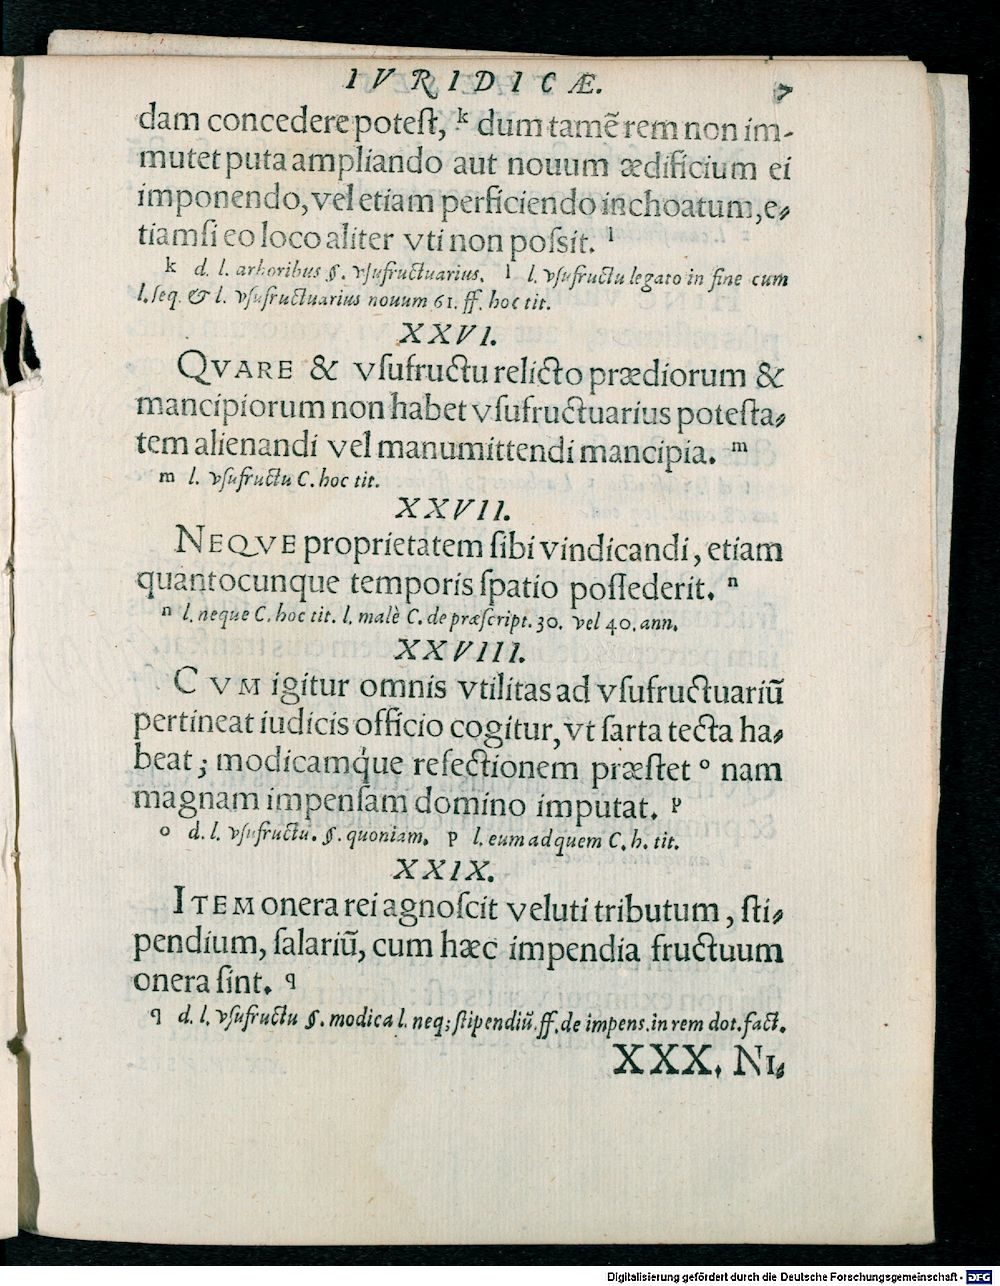 IVRIDICÆ. 7
dam concedere poteſt, ᵏ dum tamẽ rem non im-
mutet puta ampliando aut nouum ædificium ei
imponendo, vel etiam perficiendo inchoatum, e-
tiamſi eo loco aliter vti non poſsit. ˡ
k d. l. arboribus §. vſufructuarius. l l. vſufructu legato in fine cum
l. ſeq. & l. vſufructuarius nouum 61. ff. hoc tit.
XXVI.
QVARE & vſufructu relicto prædiorum &
mancipiorum non habet vſufructuarius poteſta-
tem alienandi vel manumittendi mancipia. ᵐ
m l. vſufructu C. hoc tit.
XXVII.
NEQVE proprietatem ſibi vindicandi, etiam
quantocunque temporis ſpatio poſſederit. ⁿ
n l. neque C. hoc tit. l. malè C. de præſcript. 30. vel 40. ann.
XXVIII.
CVM igitur omnis vtilitas ad vſufructuariũ
pertineat iudicis officio cogitur, vt ſarta tecta ha-
beat; modicamq́ue refectionem præſtet ᵒ nam
magnam impenſam domino imputat. ᵖ
o d. l. vſufructu. §. quoniam. p l. eum ad quem C. h. tit.
XXIX.
ITEM onera rei agnoſcit veluti tributum, ſti-
pendium, ſalariũ, cum hæc impendia fructuum
onera ſint. q
q d. l. vſufructu §. modica l. neq; ſtipendiũ. ff. de impenſ. in rem dot. fact.
XXX. NI-
Digitalisierung gefördert durch die Deutsche Forschungsgemeinschaft - DFG